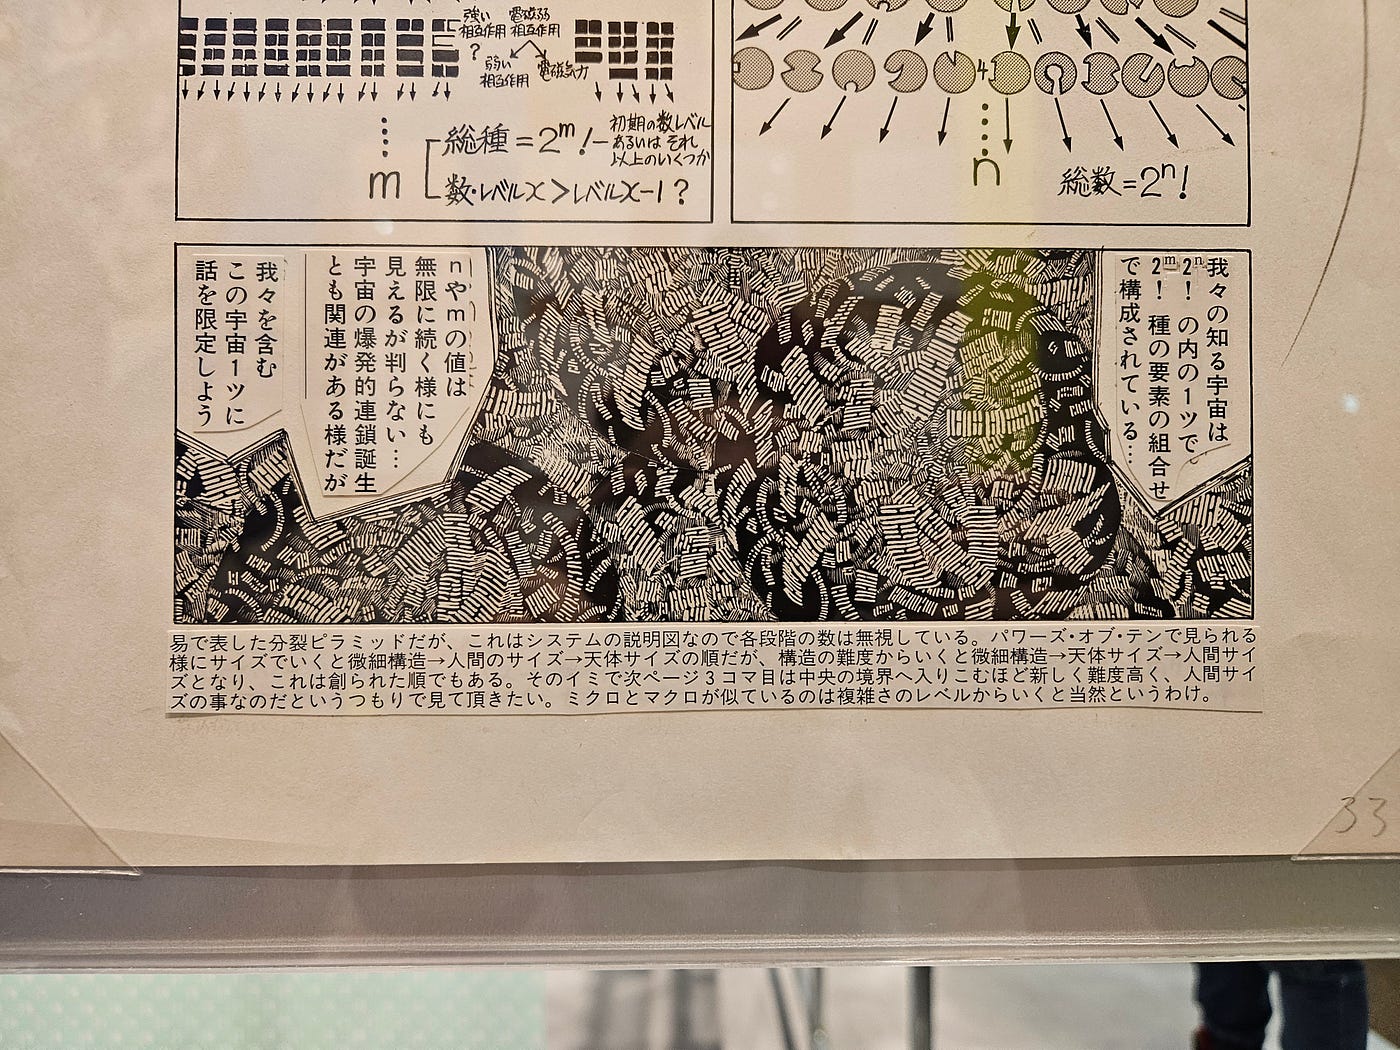 強い
相互作用
?
電磁弱
相互作用
弱い
相互作用
電磁気力
m
総種=2ᵐ!
初期の数レベル
あるいは それ
以上のいくつか
数・レベルx>レベルx-1?
4
n
総数=2ⁿ!
我々の知る宇宙は
2ⁿ! の内の1ツで
2ᵐ! 種の要素の組合せ
で構成されている…
nやmの値は
無限に続く様にも
見えるが判らない…
宇宙の爆発的連鎖誕生
とも関連がある様だが
我々を含む
この宇宙1ツに
話を限定しよう
易で表した分裂ピラミッドだが、これはシステムの説明図なので各段階の数は無視している。パワーズ・オブ・テンで見られる
様にサイズでいくと微細構造→人間のサイズ→天体サイズの順だが、構造の難度からいくと微細構造→天体サイズ→人間サイ
ズとなり、これは創られた順でもある。そのイミで次ページ3コマ目は中央の境界へ入りこむほど新しく難度高く、人間サイ
ズの事なのだというつもりで見て頂きたい。ミクロとマクロが似ているのは複雑さのレベルからいくと当然というわけ。
33